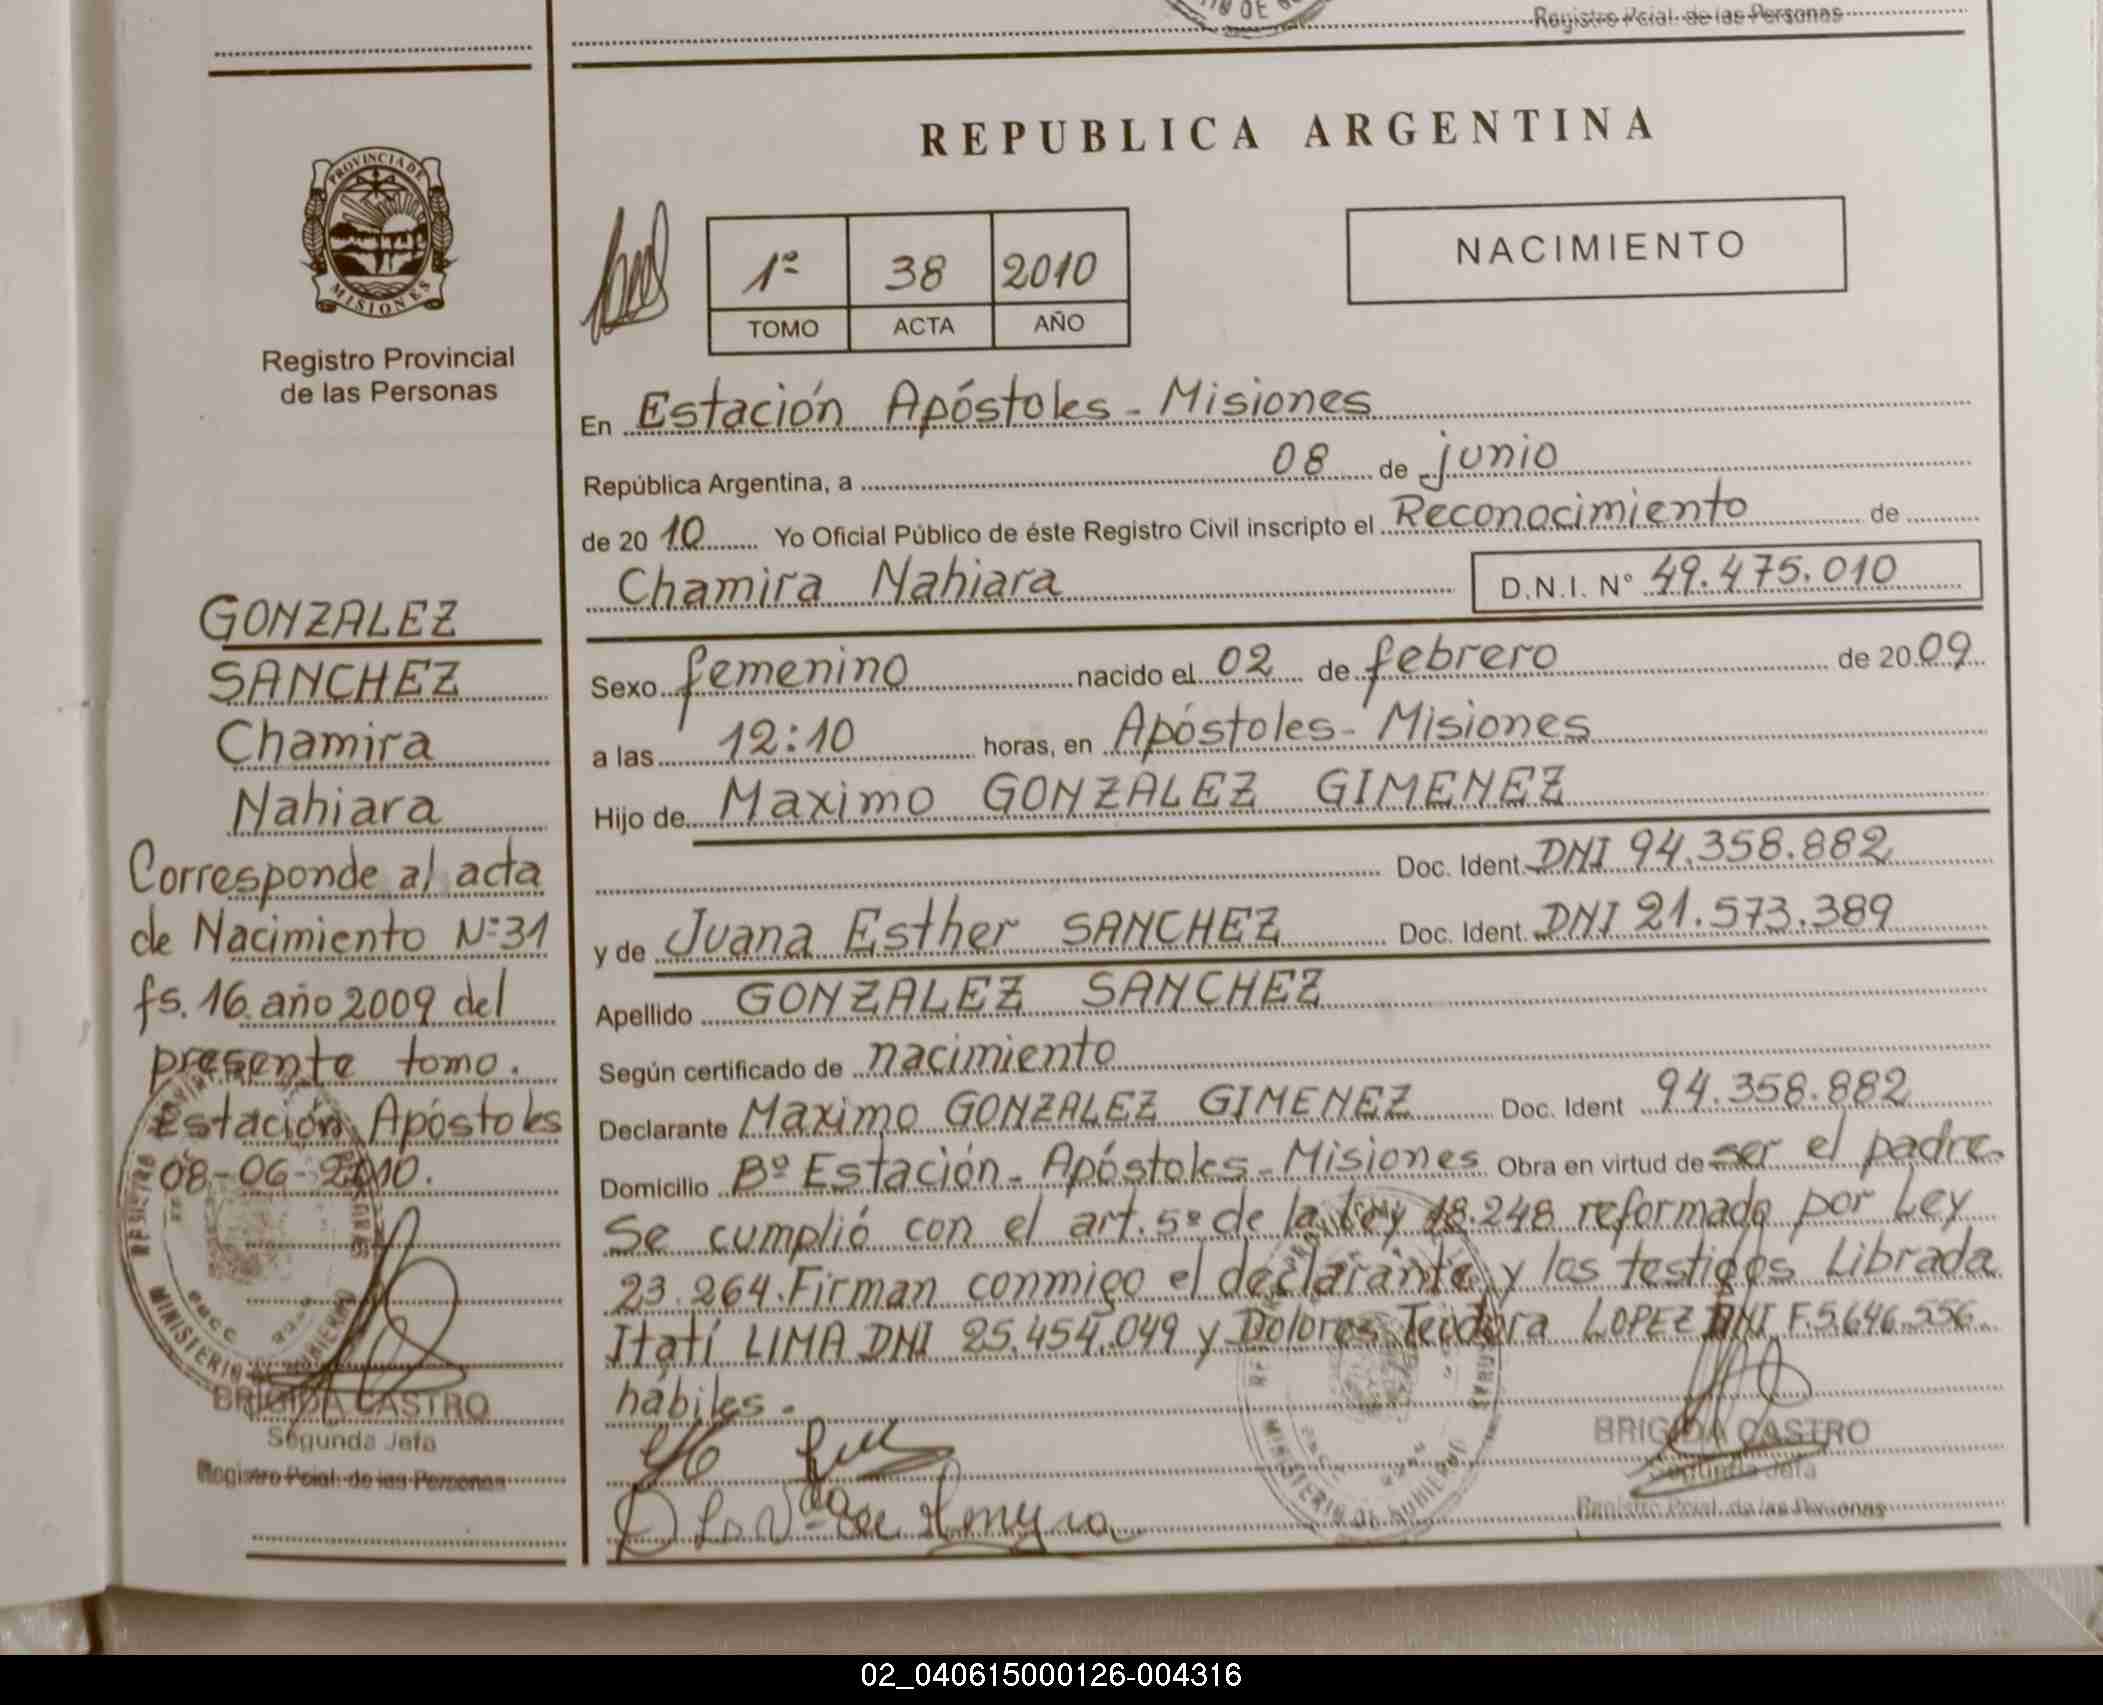 Registro Pcial. de las Personas
PROVINCIA DE
MISIONES
Registro Provincial
de las Personas
GONZALEZ
SANCHEZ
Chamira
Nahiara
Corresponde al acta
de Nacimiento Nº31
fs. 16 año 2009 del
presente tomo.
Estación Apóstoles
08-06-2010.
MINISTERIO DE GOBIERNO
BRIGIDA CASTRO
Segunda Jefa
Registro Pcial. de las Personas
REPUBLICA ARGENTINA
1º 38 2010
TOMO ACTA AÑO
NACIMIENTO
En Estación Apóstoles - Misiones
República Argentina, a 08 de junio
de 2010 Yo Oficial Público de éste Registro Civil inscripto el Reconocimiento de
Chamira Nahiara D.N.I. Nº 49.475.010
Sexo femenino nacido el 02 de febrero de 2009
a las 12:10 horas, en Apóstoles - Misiones
Hijo de Maximo GONZALEZ GIMENEZ
Doc. Ident. DNI 94.358.882
y de Juana Esther SANCHEZ Doc. Ident. DNI 21.573.389
Apellido GONZALEZ SANCHEZ
Según certificado de nacimiento
Declarante Maximo GONZALEZ GIMENEZ Doc. Ident 94.358.882
Domicilio Bº Estación - Apóstoles - Misiones Obra en virtud de ser el padre.
Se cumplió con el art. 5º de la Ley 18.248 reformado por Ley
23.264. Firman conmigo el declarante y los testigos Librada
Itatí LIMA DNI 25.454.049 y Dolores Teodora LOPEZ DNI F.5.646.556.
hábiles.
MINISTERIO DE GOBIERNO
BRIGIDA CASTRO
Segunda Jefa
Registro Pcial. de las Personas
02_040615000126-004316